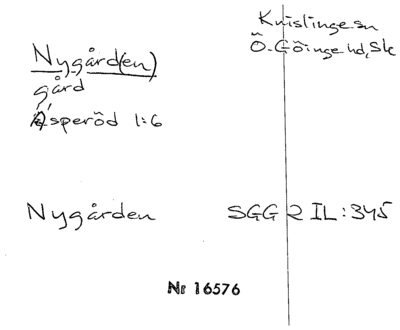 Knislinge sn
Nygård(en) Ö. Göinge hd, Sk
gård
Åsperöd 1:6
Nygården SGG 2 IL:345
Nr 16576